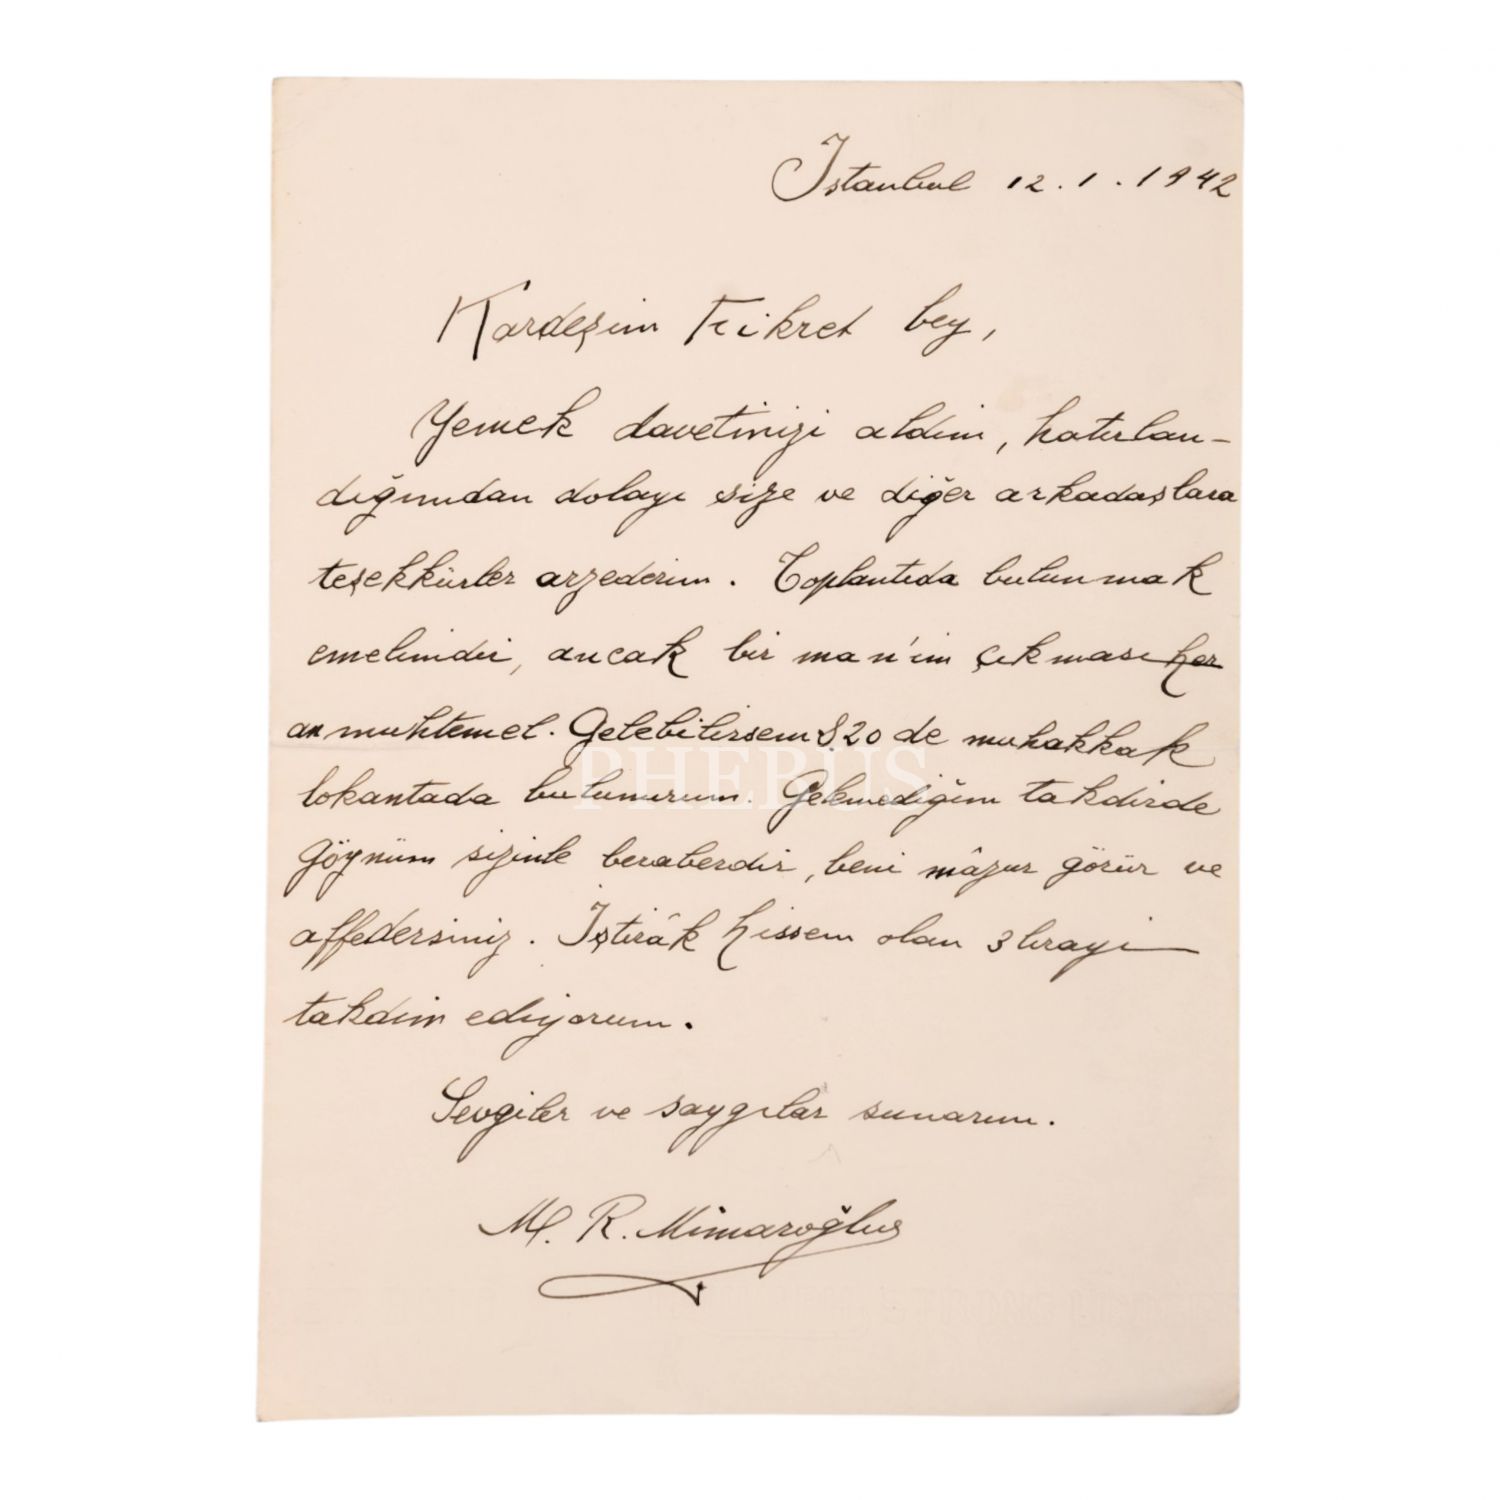 İstanbul 12.1.1942
Kardeşim Fikret bey,
Yemek davetinizi aldım, hatırlan-
dığımdan dolayı size ve diğer arkadaşlara
teşekkürler arzederim. Toplantıda bulunmak
emelimdir, ancak bir man'im çıkması her
an muhtemel. Gelebilirsem 820 de muhakkak
PHEBUS
lokantada bulunurum. Gelemediğim takdirde
göynüm sizinle beraberdir, beni mâzur görür ve
affedersiniz. İştirâk hissem olan 3 lirayi
takdim ediyorum.
Sevgiler ve saygılar sunarım.
M. R. Mimaroğlu